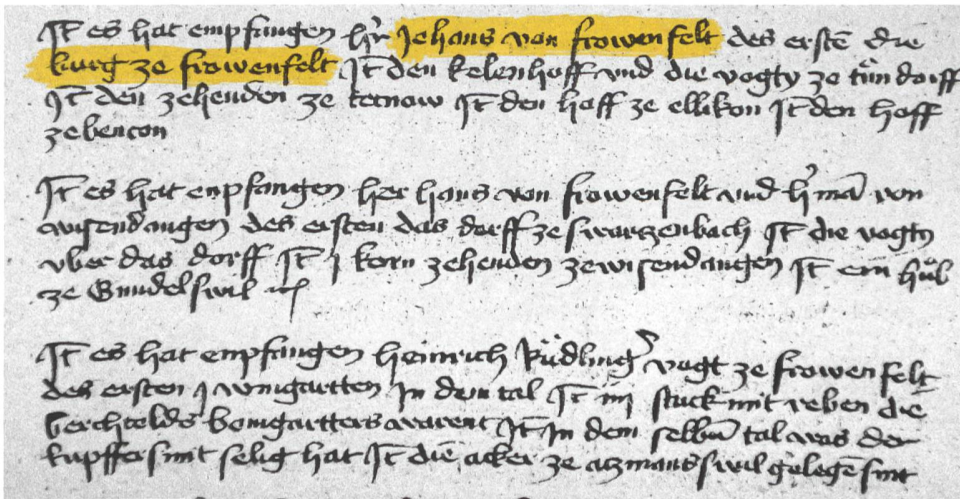 It es hat empfangen hr Jehans von frowenfelt des erstē die
burg ze frowenfelt It den kelenhoff vnd die vogty ze tůndorff
It den zehenden ze tetnow It den hoff ze ellikon It den hoff
ze bencon
It es hat enpfangen her hans von frowenfelt vnd hrmā von
wisendangen des ersten das dorff ze swarzenbach It die vogty
vber das dorff It j korn zehenden ze wisendangen It ein hůb
ze Gundelswil
It es hat enpfangen heinrich Rüdling vogt ze frowenfelt
des ersten j wingartten In dem tal It iiij stuck mit reben die
berchtolds bomgartters warent It In dem selbn tal was der
kupffersmit selig hat It die acker ze atzmanswil gelegē sint